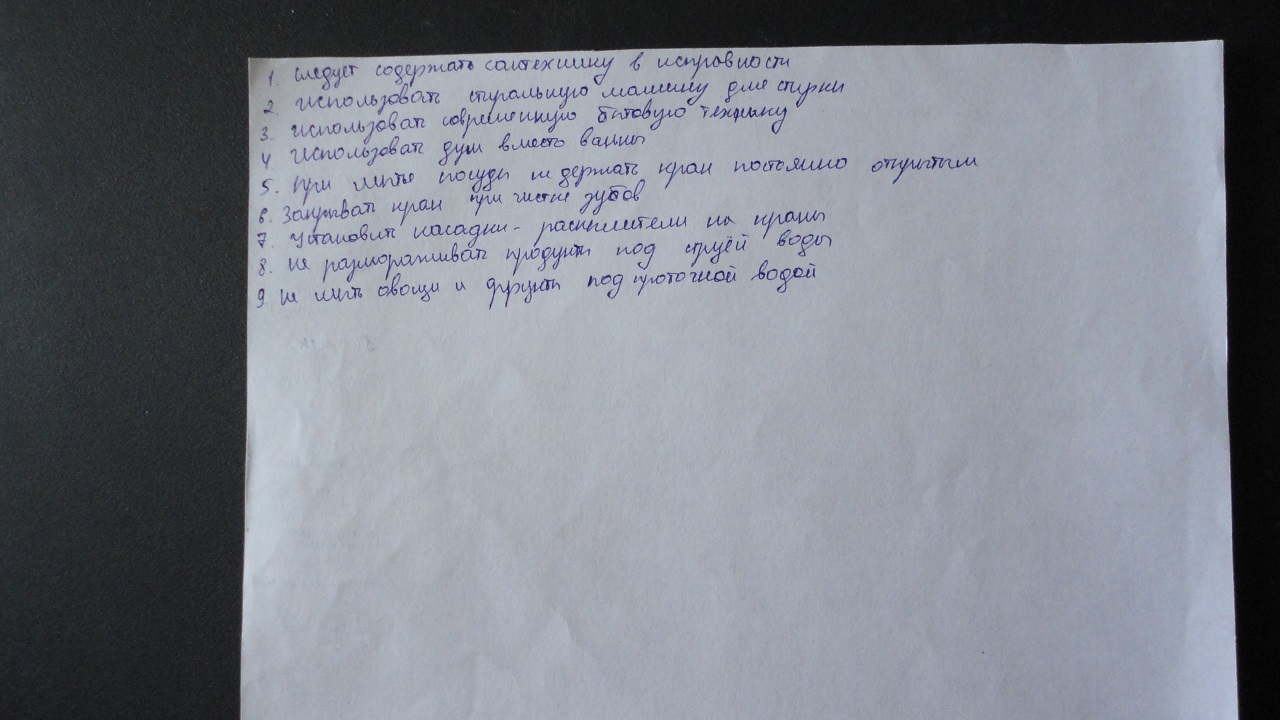 1. Следует содержать сантехнику в исправности
2. Использовать стиральную машину для стирки
3. Использовать современную бытовую технику
4 Использовать душ вместо ванны
5. При мытье посуды не держать кран постоянно открытым
6. Закрывать кран при чистке зубов
7. Установить насадки - распылители на краны
8. Не размораживать продукты под струёй воды
9. Не мыть овощи и фрукты под проточной водой